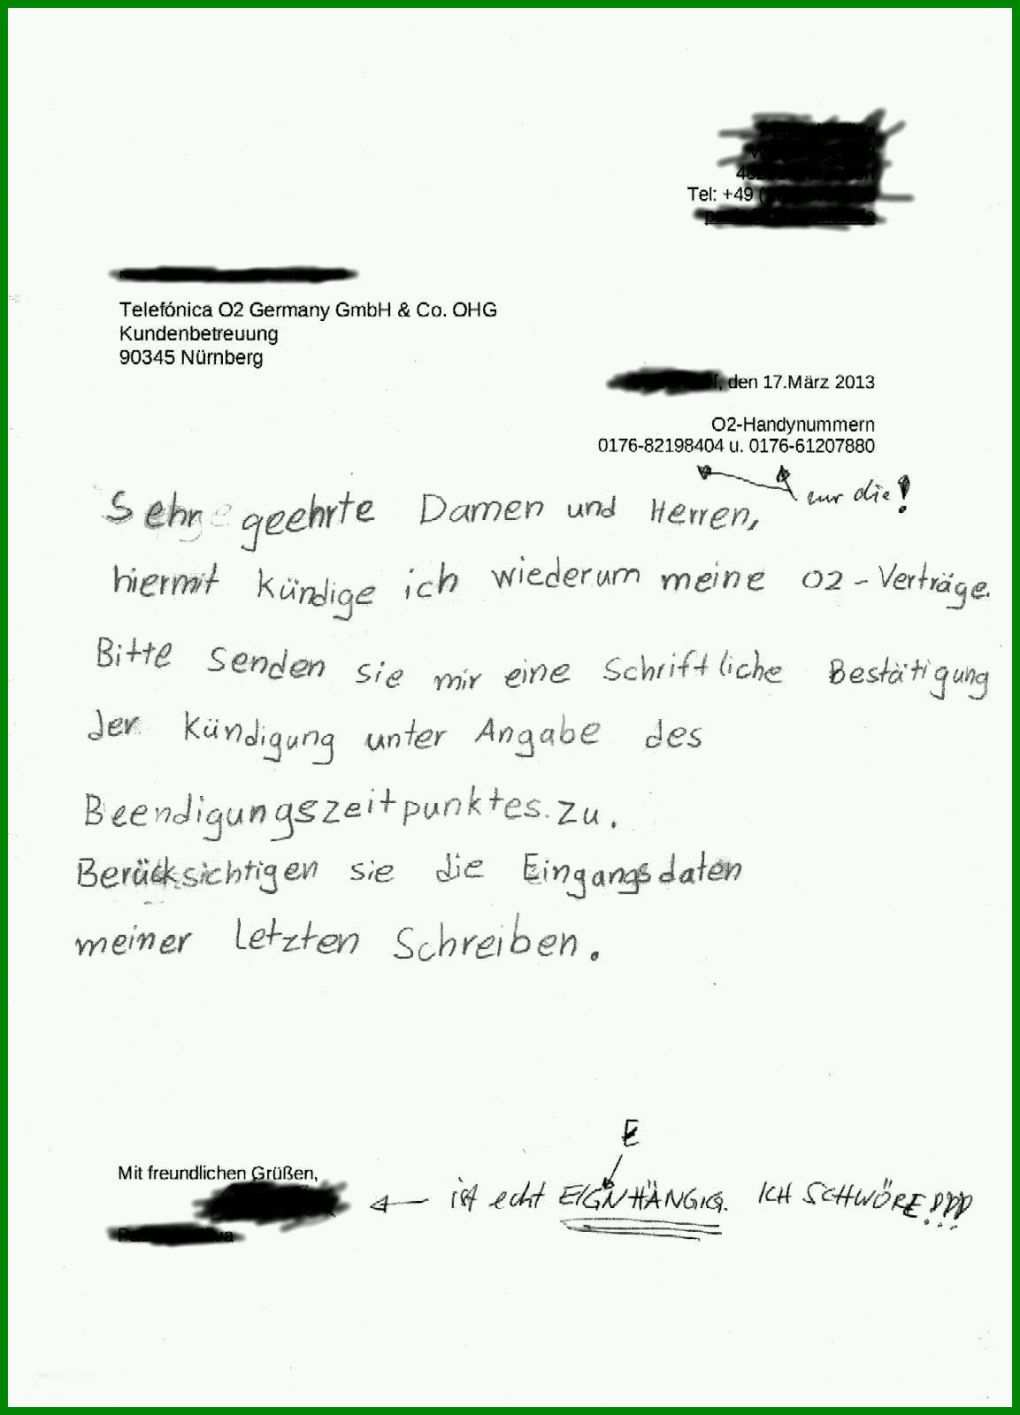 Tel: +49 (
Telefónica O2 Germany GmbH & Co. OHG
Kundenbetreuung
90345 Nürnberg
, den 17.März 2013
O2-Handynummern
0176-82198404 u. 0176-61207880
nur die!
Sehr geehrte Damen und Herren,
hiermit kündige ich wiederum meine O2-Verträge.
Bitte senden sie mir eine Schriftliche Bestätigung
der Kündigung unter Angabe des
Beendigungszeitpunktes. zu.
Berücksichtigen sie die Eingangsdaten
meiner letzten Schreiben.
E
Mit freundlichen Grüßen,
ist echt EIGNHÄNGIG. ICH SCHWÖRE!!!